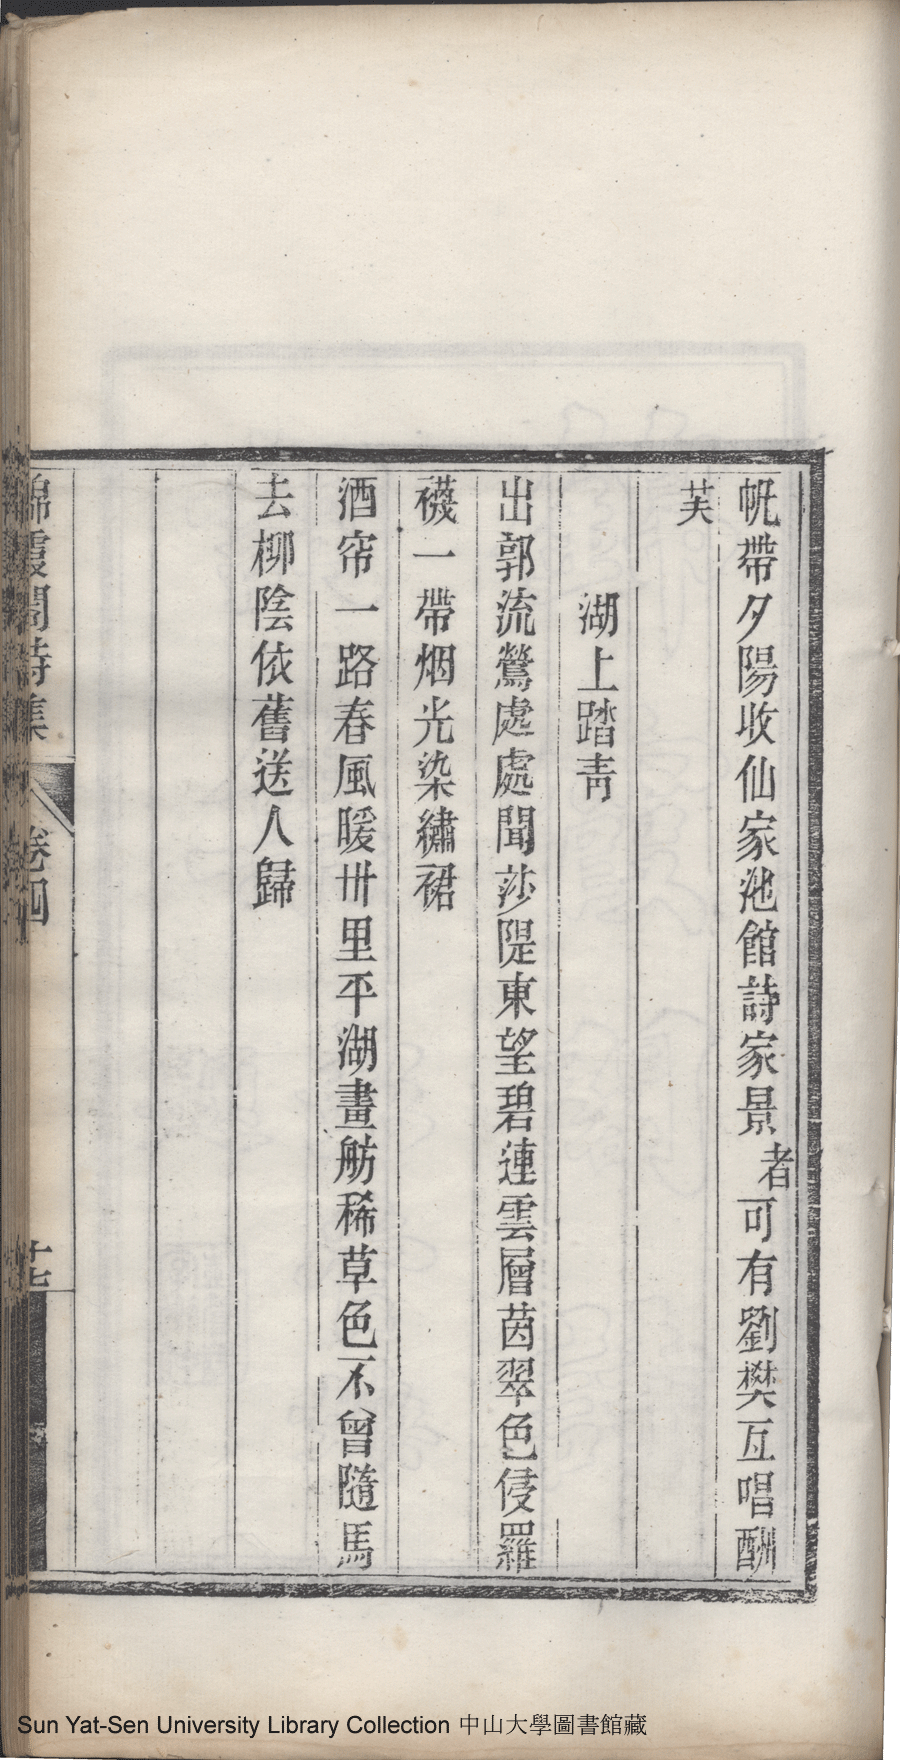 帆帶夕陽收仙家池館詩家景者可有劉樊互唱酬
芙
湖上踏青
出郭流鶯處處聞莎隄東望碧連雲層茵翠色侵羅
襪一帶烟光染繡裙
酒帘一路春風暖卅里平湖畫舫稀草色不曾隨馬
去柳陰依舊送人歸
錦霞閣詩集
卷四
十七
Sun Yat-Sen University Library Collection 中山大學圖書館藏